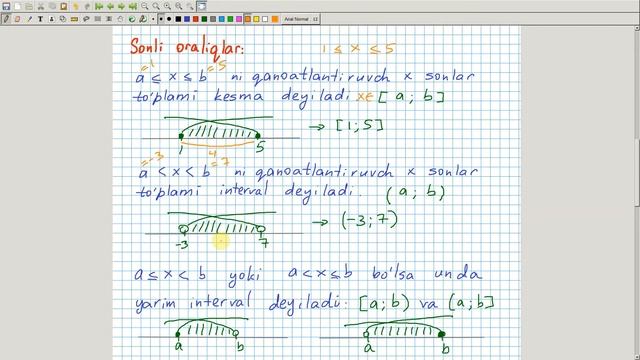 Sonli oraliqlar: 1 ≤ x ≤ 5
=1 =5
a ≤ x ≤ b ni qanoatlantiruvch x sonlar
to'plami kesma deyiladi x∈ [a; b]
→ [1; 5]
1 4 5
=-3 =7
a < x < b ni qanoatlantiruvch x sonlar
to'plami interval deyiladi. (a; b)
→ (-3; 7)
-3 7
a ≤ x < b yoki a < x ≤ b bo'lsa unda
yarim interval deyiladi: [a; b) va (a; b]
a b a b